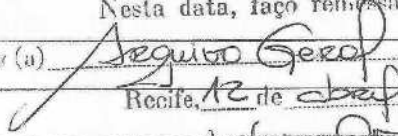 Nesta data, faço remessa
(a) Arquivo Geral
Recife, 12 de abril